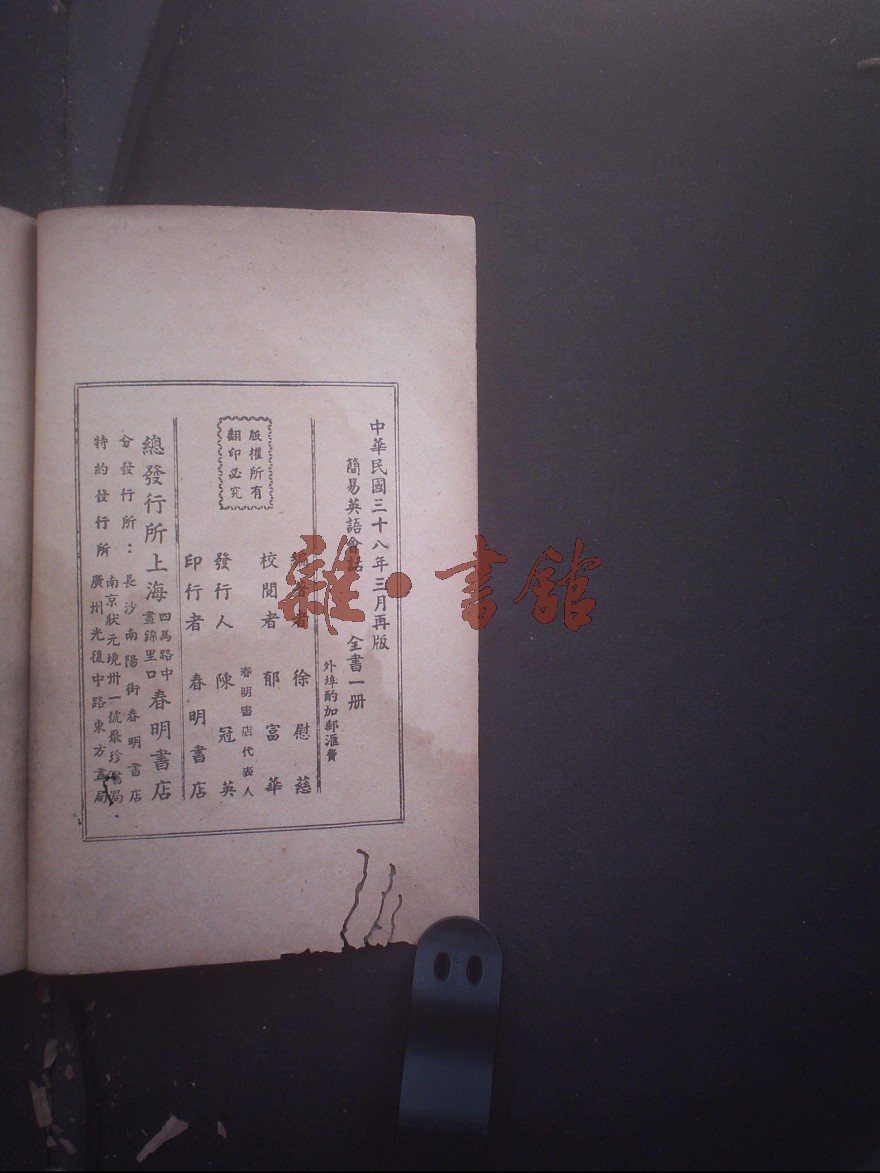 中華民國三十八年三月再版
簡易英語會話 全書一册
外埠酌加郵滙費
編著者 徐慰慈
校閱者 郁富華
春明書店代表人
發行人 陳冠英
印行者 春明書店
版權所有
翻印必究
總發行所 上海 四馬路中 晝錦里口 春明書店
分發行所： 長沙南陽街春明書店
南京狀元境卅一號聚珍書局
特約發行所 廣州光復中路東方書局
雜·書館